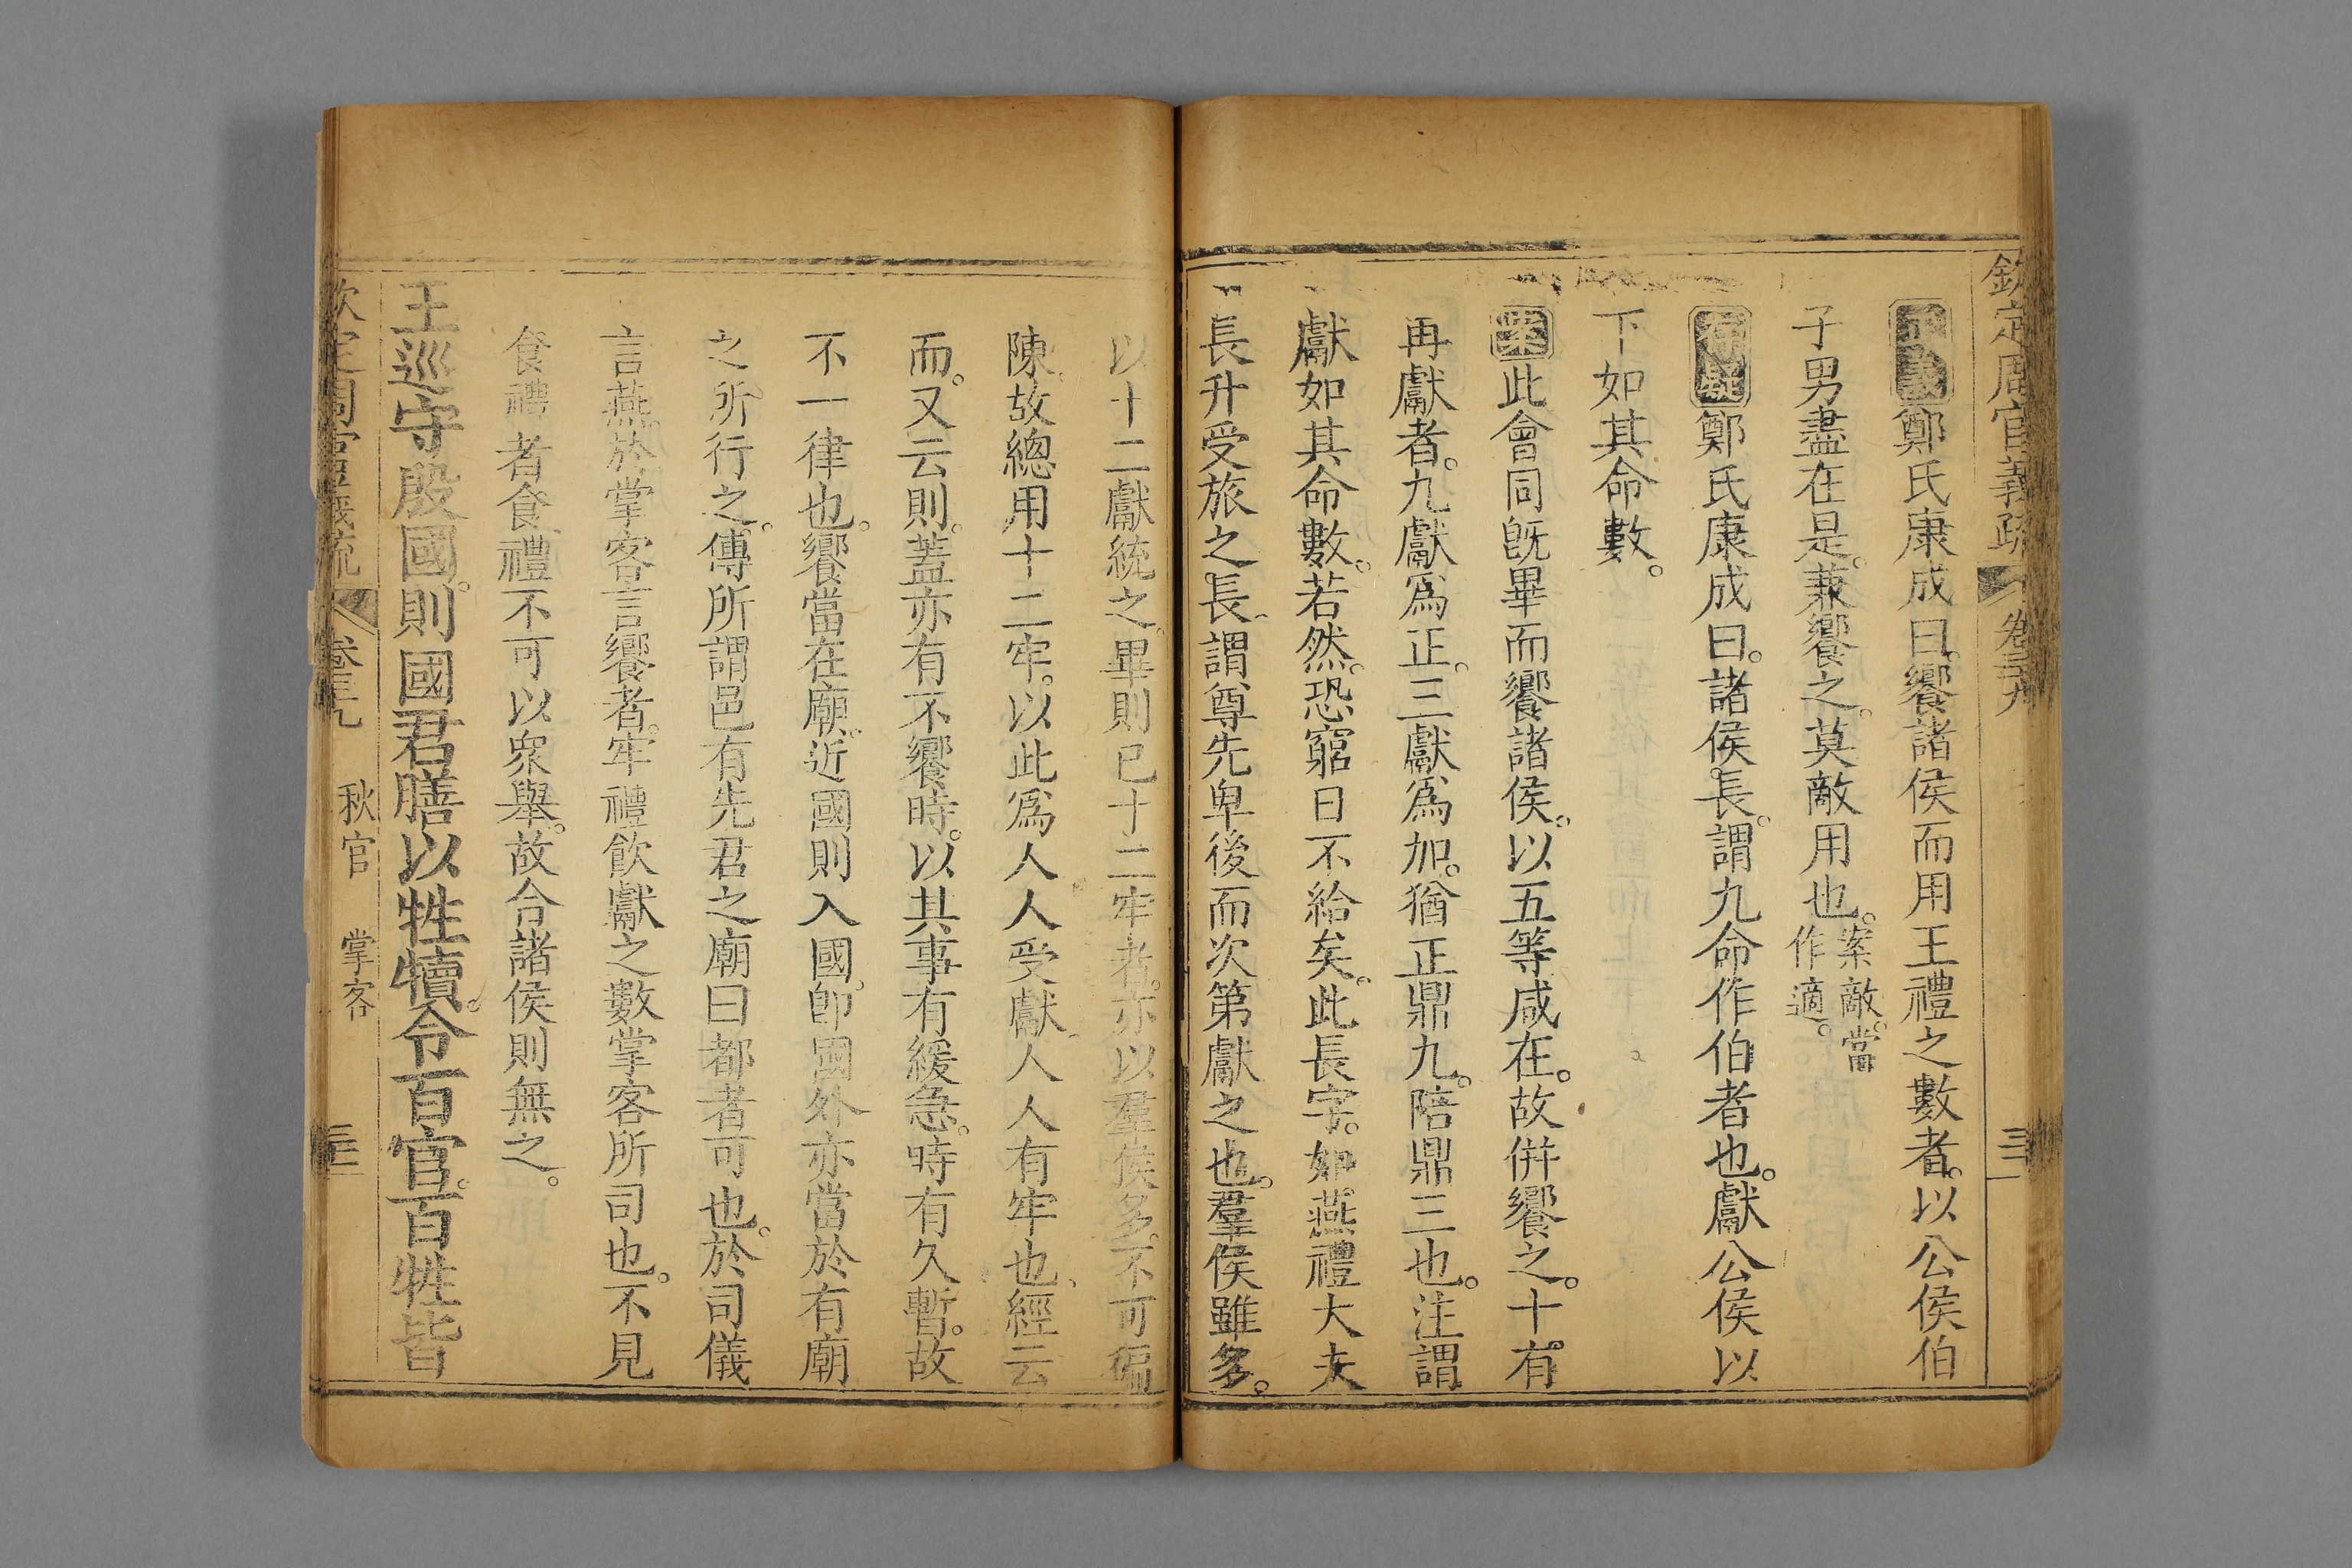 欽定周官義疏 卷三十九
正義鄭氏康成曰。饗諸侯而用王禮之數者。以公侯伯
子男盡在是。兼饗之。莫敵用也。案敵。當作適。
存疑鄭氏康成曰。諸侯長。謂九命作伯者也。獻公侯以
下如其命數。
案此會同旣畢而饗諸侯。以五等咸在。故併饗之。十有
再獻者。九獻爲正。三獻爲加。猶正鼎九。陪鼎三也。注謂
獻如其命數。若然。恐窮日不給矣。此長字。如燕禮大夫
長升受旅之長。謂尊先卑後而次第獻之也。羣侯雖多。
以十二獻統之。畢則已十二牢者。亦以羣侯多。不可徧
陳。故總用十二牢。以此爲人人受獻、人人有牢也、經云
而。又云則。蓋亦有不饗時。以其事有緩急。時有久暫。故
不一律也。饗當在廟。近國則入國。卽國外亦當於有廟
之所行之。傳所謂邑有先君之廟曰都者可也。於司儀
言燕。於掌客言饗者。牢禮飮獻之數掌客所司也。不見
食禮者食禮不可以衆舉。故合諸侯則無之。
王巡守殷國。則國君膳以牲犢。令百官。百牲皆
欽定周官義疏 卷三十九 秋官 掌客